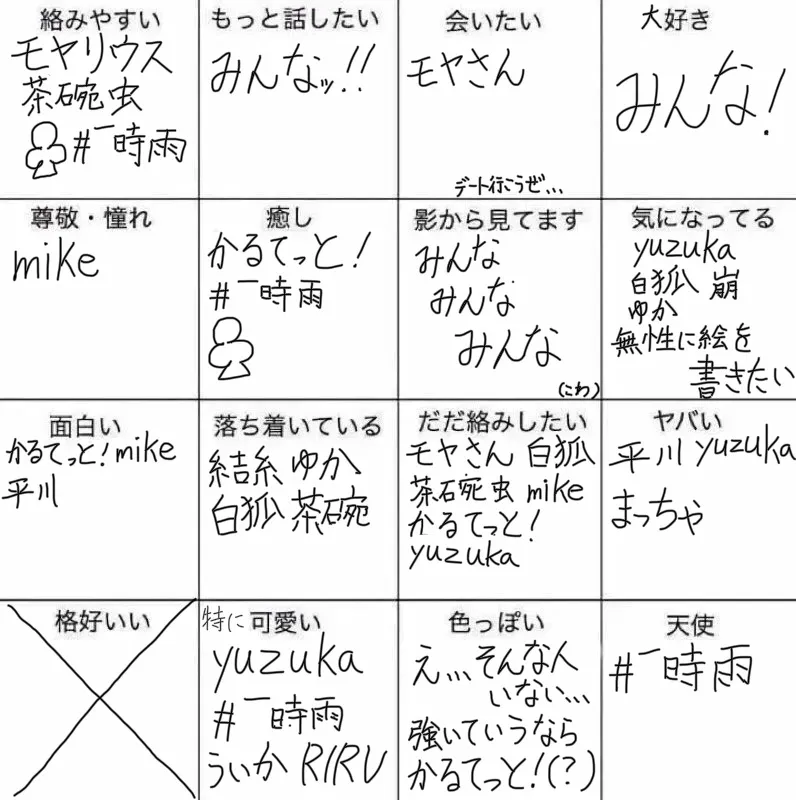 絡みやすい
モヤリウス
茶碗虫
♧#一時雨
もっと話したい
みんなッ!!
会いたい
モヤさん
デート行こうぜ...
大好き
みんな!
尊敬・憧れ
mike
癒し
かるてっと!
#一時雨
♧
影から見てます
みんな
みんな
みんな
(こわ)
気になってる
yuzuka
白狐 崩
ゆか
無性に絵を
書きたい
面白い
かるてっと!mike
平川
落ち着いている
結糸 ゆか
白狐 茶碗
だだ絡みしたい
モヤさん 白狐
茶碗虫 mike
かるてっと!
yuzuka
ヤバい
平川 yuzuka
まっちゃ
格好いい
特に可愛い
yuzuka
#一時雨
ういか RIRU
色っぽい
え...そんな人
いない...
強いていうなら
かるてっと!(?)
天使
#一時雨